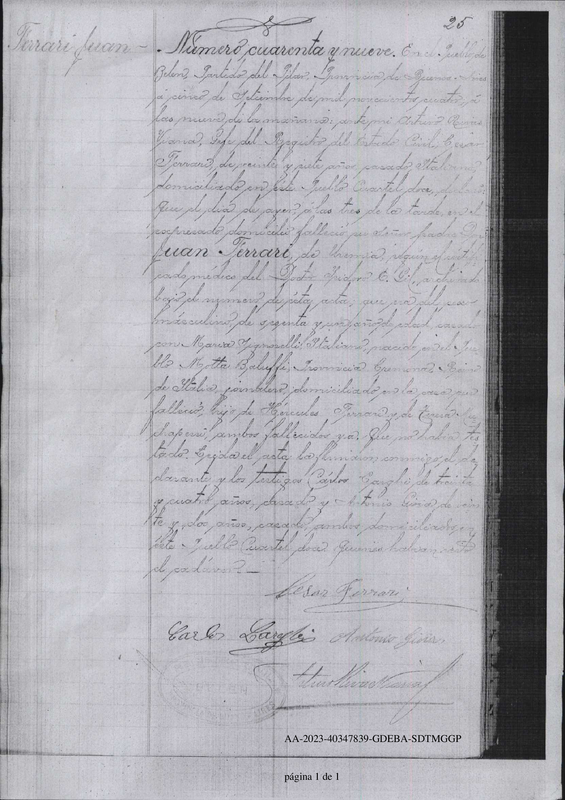 25
Ferrari Juan - Número cuarenta y nueve. En el Pueblo de
Belen, Partido del Pilar, Provincia de Buenos Aires
á cinco de Setiembre de mil novecientos cuatro, á
las nueve de la mañana, ante mi Arturo Rivas
Viana, Jefe del Registro del Estado Civil, Cesar
Ferrari, de veinte y siete años, casado, Italiano,
domiciliado en este Pueblo Cuartel doce, declaró
Que el dia de ayer á las tres de la tarde, en el
expresado domicilio falleció su señor padre Dn
Juan Ferrari, de Uremia, segun el certifi
cado médico del Doctor E.
bajo el número de ésta acta; que era del sexo
masculino, de sesenta y un años de edad, casado
con Maria Italiana, nacido en el Pue
blo Motta Baluffi, Provincia Cremona, Reino
de Italia, jornalero, domiciliado en la casa en que
falleció, hijo de Hércules Ferrari y de
ambos fallecidos ya. Que no habia tes
tado. Leida el acta la firmaron conmigo el de
clarante y los testigos Cárlos de treinta
y cuatro años, casado y Antonio de vein
te y dos años, casado, ambos domiciliados en
éste Pueblo Cuartel doce quienes habian visto
el cadáver. —
Cesar Ferrari
Carlo
Antonio
Arturo Rivas Viana
AA-2023-40347839-GDEBA-SDTMGGP
página 1 de 1